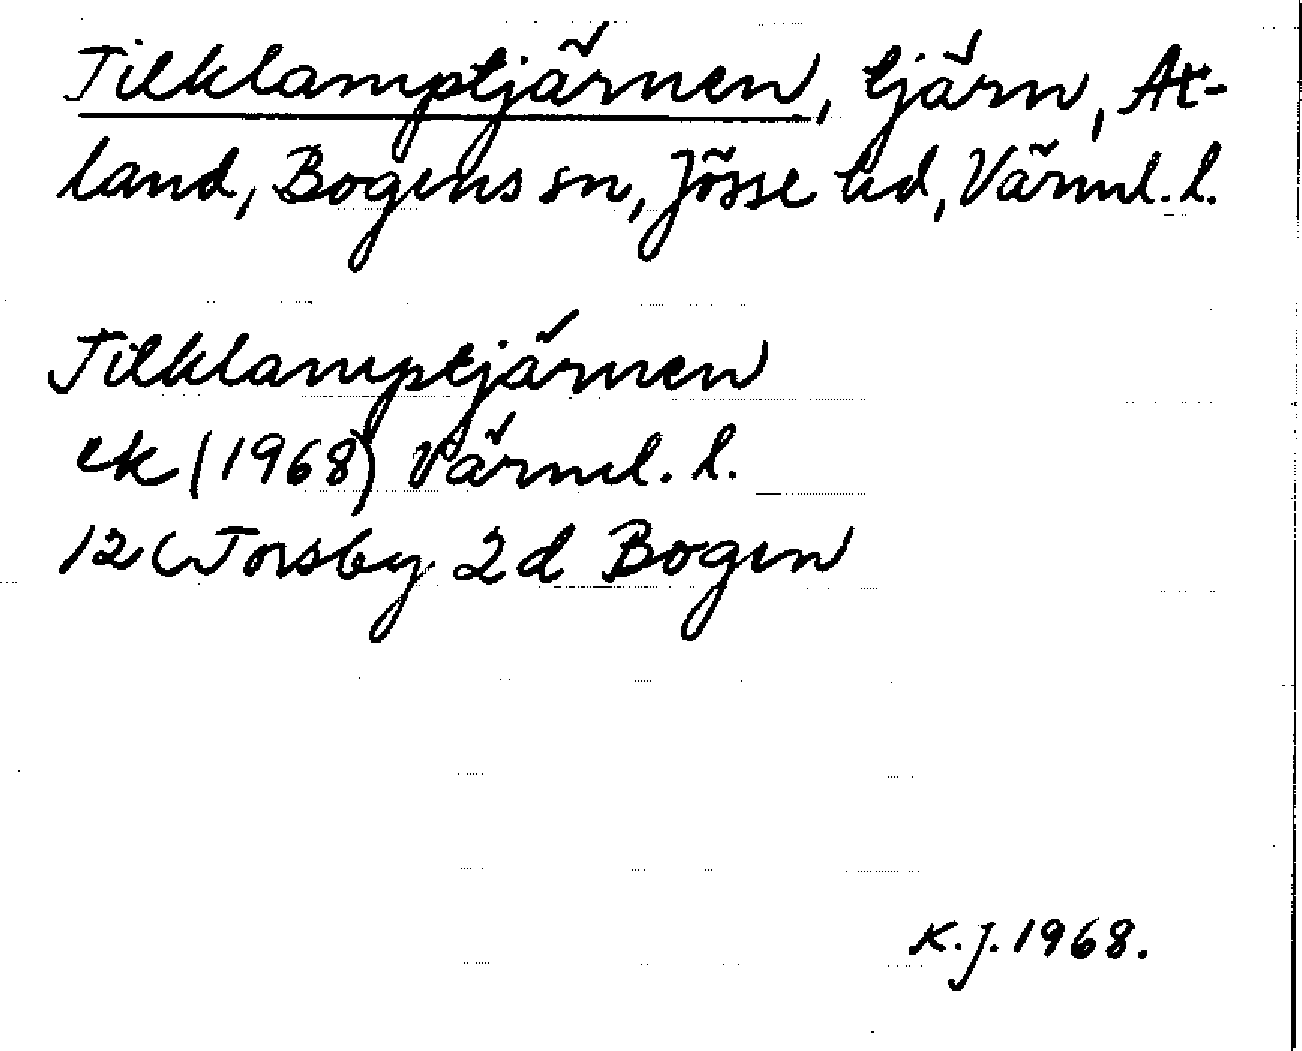 Tilklamptjärnen, tjärn, At-
land, Bogens sn, Jösse hd, Värml. l.
Tilklamptjärnen
ek (1968) Värml. l.
12 C Torsby 2d Bogen
K.J. 1968.